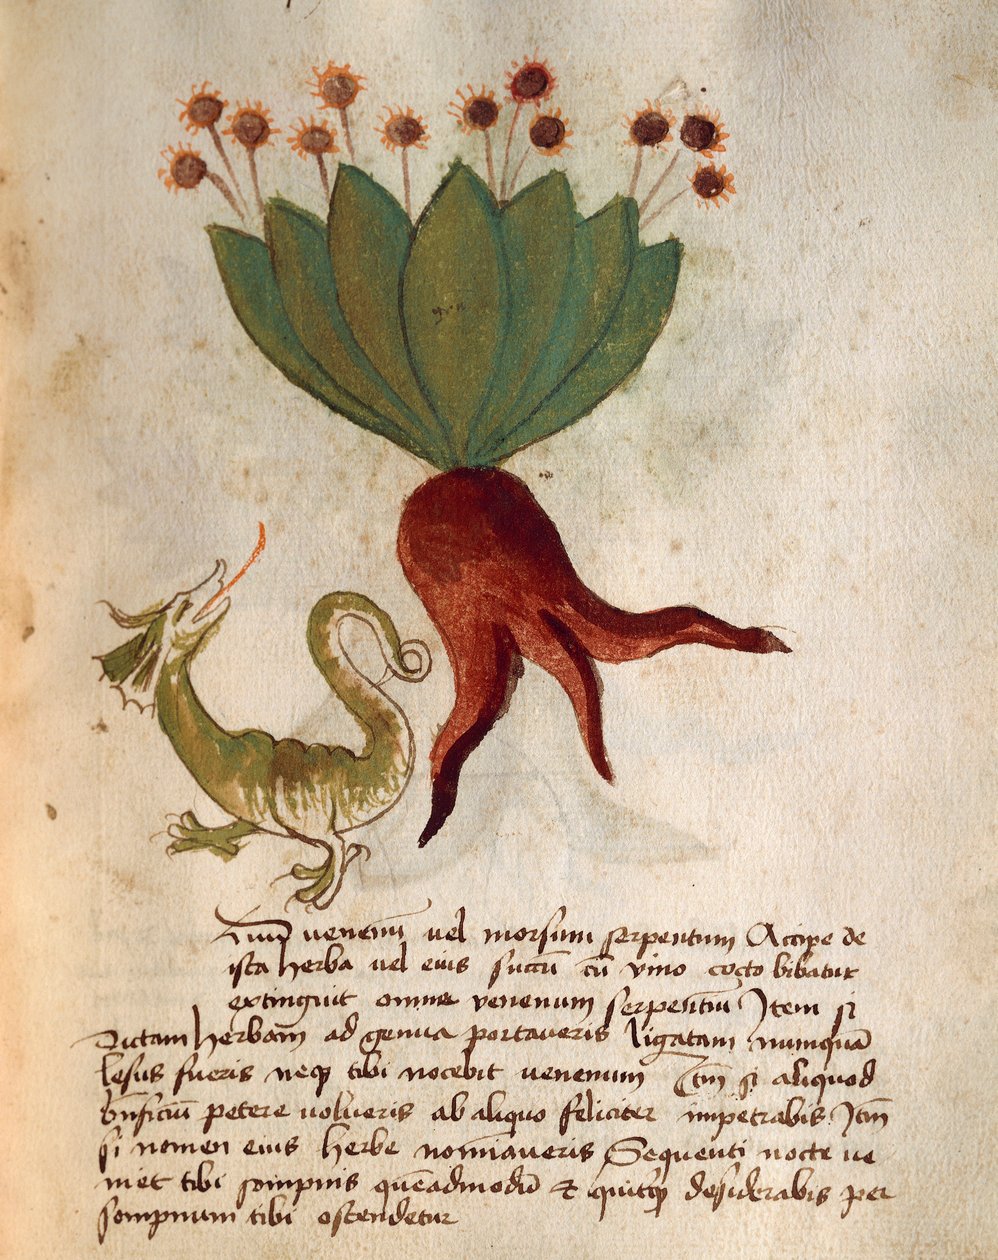 venenum vel morsum serpentum Accipe de
ista herba vel eius succū cū vino cocto bibatur
extinguit omne venenum serpentiū Item si
dictam herbam ad genua portaveris ligatam numquā
lesus fueris neqꝫ tibi nocebit venenum Itm si aliquod
bn̄ficiū petere volueris ab aliquo feliciter impetrabis Itm
si nomen eius herbe nomīaveris Sequenti nocte ve
niet tibi sompnis quēadmodū & quitqꝫ desiderabis per
sompnum tibi ostendetur